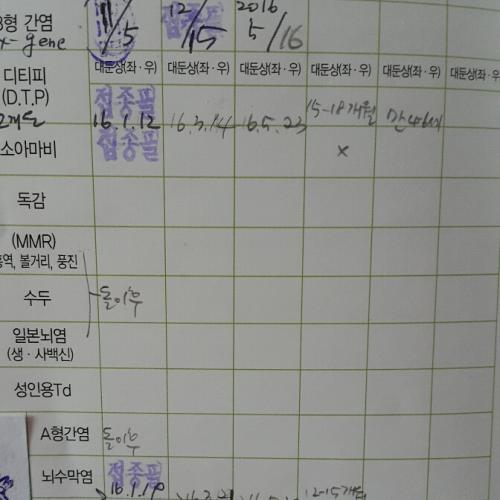 B형 간염 11/5 12/15 2016 5/16
x-gene 접종필
디티피 대둔상(좌·우) 대둔상(좌·우) 대둔상(좌·우) 대둔상(좌·우) 대둔상(좌·우) 대둔상(좌·우)
(D.T.P) 접종필 15-18개월
16.1.12 16.3.14 16.5.23
소아마비 접종필 x
독감
(MMR)
홍역, 볼거리, 풍진
수두 돌이후
일본뇌염
(생·사백신)
성인용Td
A형간염 돌이후
뇌수막염 접종필
16.1.19 12-15개월